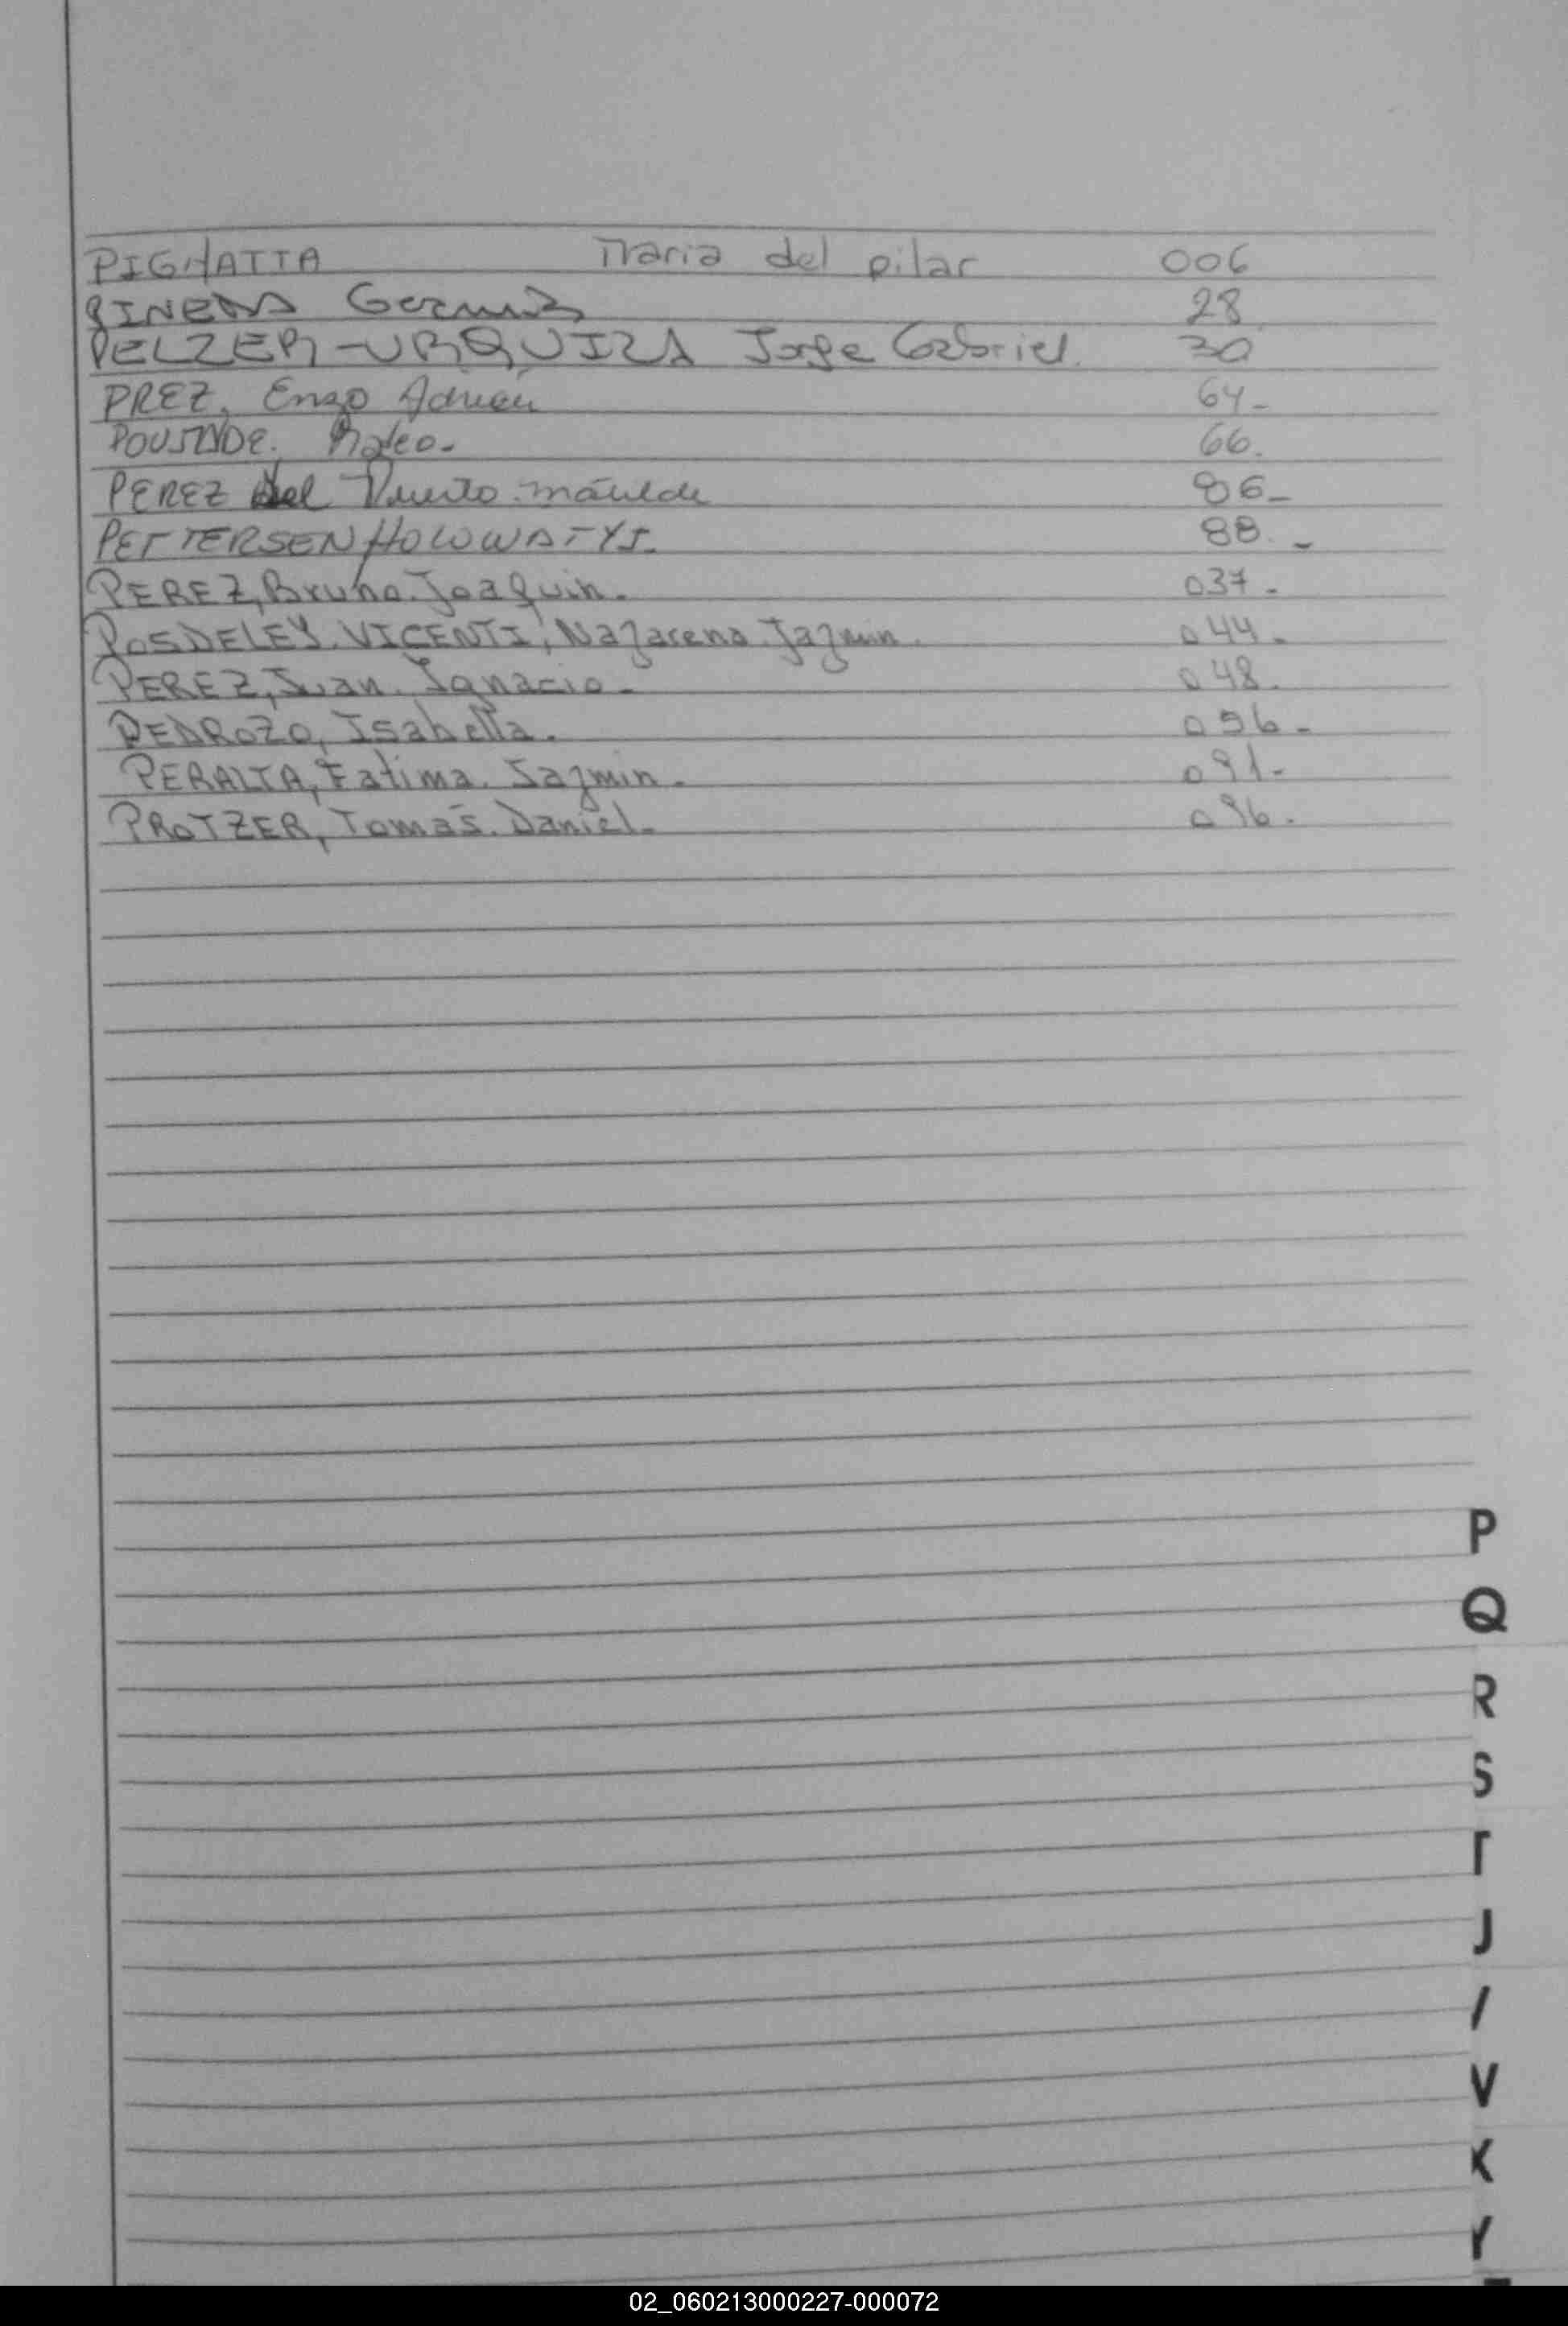 PIGNATTA Maria del pilar 006
28
PELZER-URQUIZA Jorge Gabriel. 30
PREZ, Enzo Adrian 64-
Mateo- 66.
PEREZ del Puerto matilde 86-
PETTERSEN HOLOWATYS. 88.-
PEREZ, Bruno. Joaquin. 037-
POSDELEY. VICENTI, Nazareno. Jazmin. 044.
PEREZ, Juan. Ignacio- 048.
PEDROZO, Isabella. 056-
PERALTA, Fatima. Jazmin. 091-
PROTZER, Tomás. Daniel- 096.
P
Q
R
S
T
J
/
V
X
Y
02_060213000227-000072